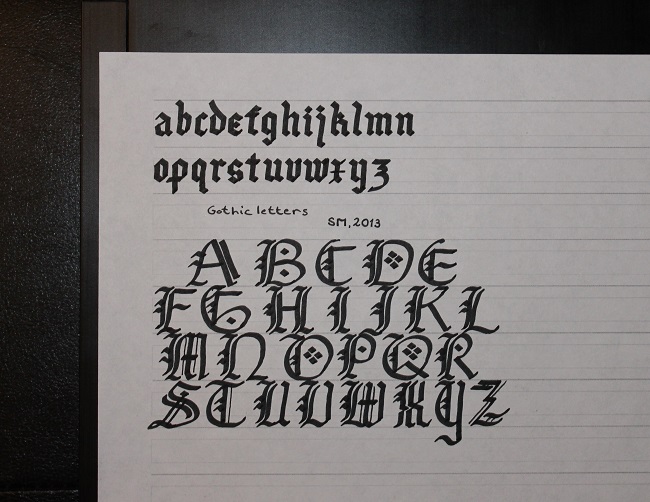 abcdefghijklmn
opqrstuvwxyz
Gothic letters
SM, 2013
A B C D E
F G H I J K L
M N O P Q R
S T U V W X Y Z